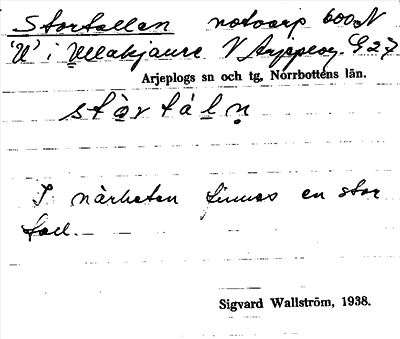 Stortallen notvarp 600 N
'U' i Uddakjaure V Arjeplog. G 27
Arjeplogs sn och tg, Norrbottens län.
stòrtáln
I närheten finnes en stor
tall.
Sigvard Wallström, 1938.